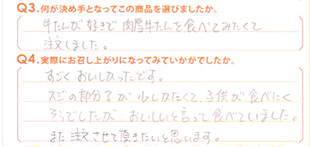 Q3.何が決め手となってこの商品を選びましたか。
牛たんが好きで肉厚牛たんを食べてみたくて
注文しました。
Q4.実際にお召し上がりになってみていかがでしたか。
すごくおいしかったです。
スジの部分が少しかたくて、子供が食べにく
そうでしたがおいしいと言って食べていました。
また注文させて頂きたいと思います。